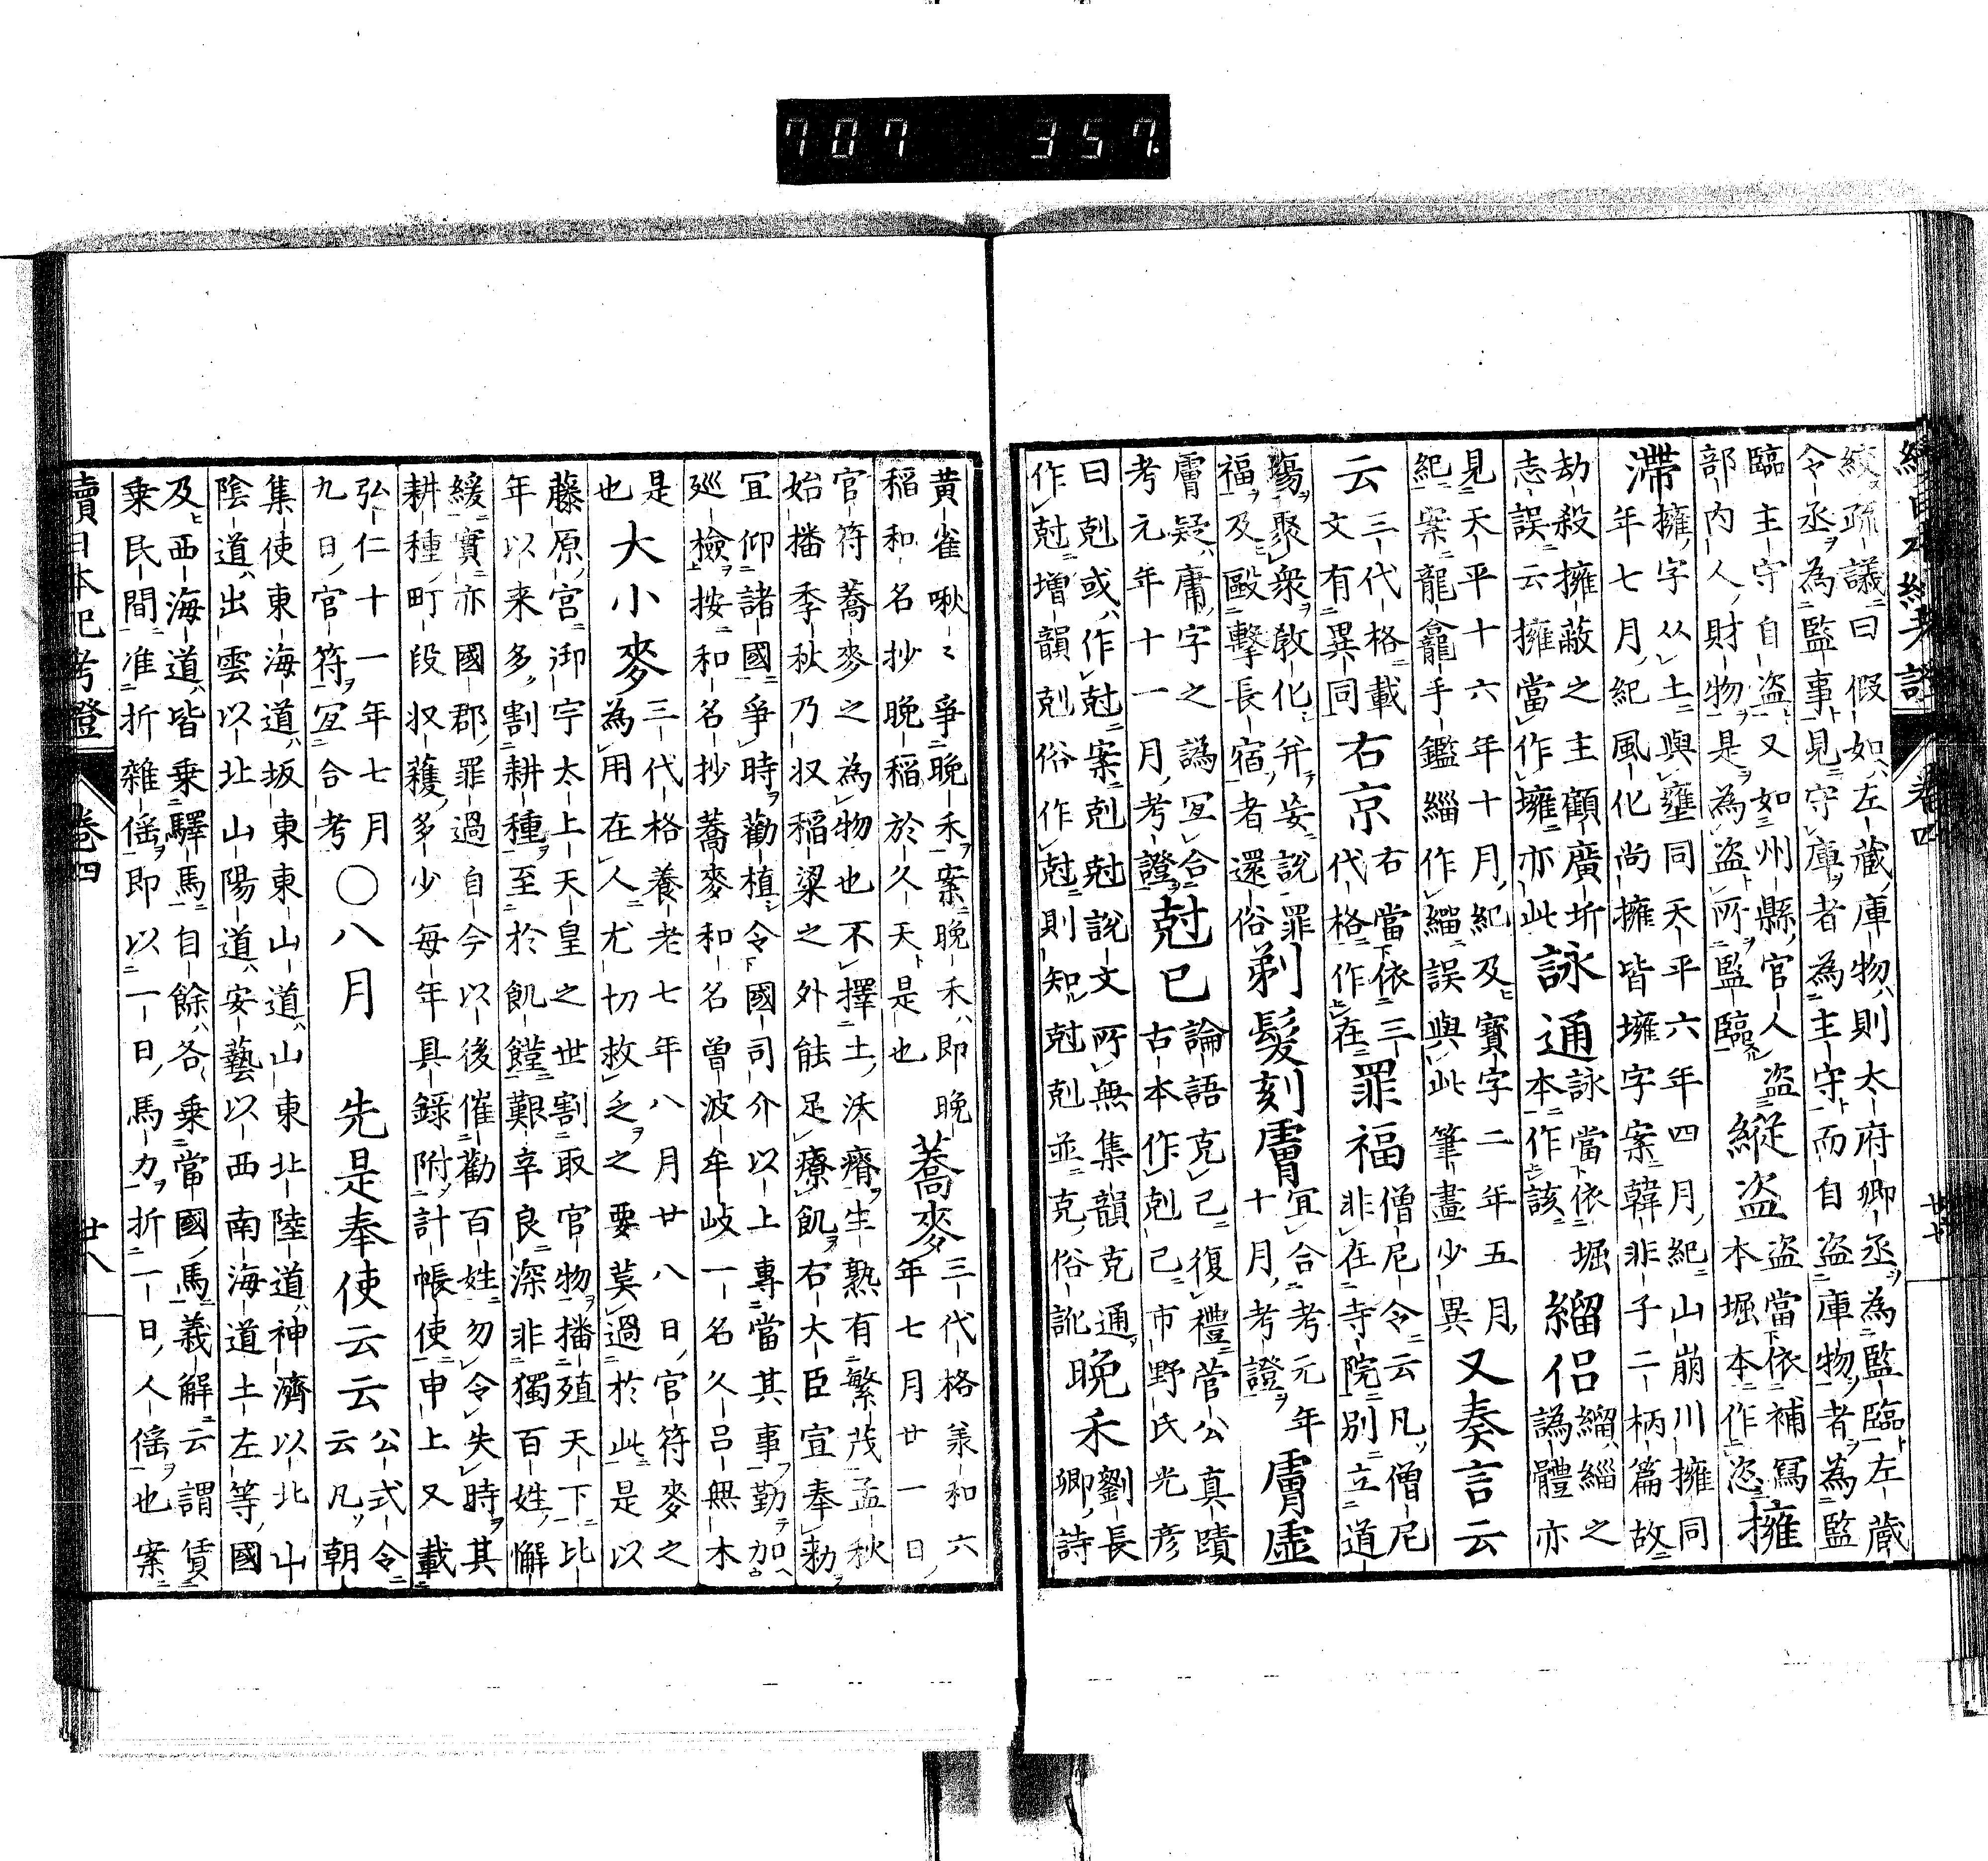 續日本紀考證 卷四 廿七
絞疏議曰假如左藏庫物則太府卿丞為監臨左藏
令丞為監事見守庫者為主守而自盗庫物者為監
臨主守自盗又如州縣官人盗
部内人財物是為盗所監臨
縱盗
盗當依補寫
本堀本作恣
擁
滯
擁字从土與壅同天平六年四月紀山崩川擁同
年七月紀風化尚擁皆壅字案韓非子二柄篇故
劫殺擁蔽之主顧廣圻
志誤云擁當作壅亦此
詠通
詠當依堀
本作該
緇侶
緇緇之
譌體亦
見天平十六年十月紀及寳字二年五月
紀案龍龕手鑑緇作緇誤與此筆畫少異
又奏言云
云
三代格載
文有異同
右京
右當依三
代格作在
罪福
僧尼令云凡僧尼
非在寺院別立道
場聚衆敎化并妄説罪
福及毆擊長宿者還俗
剃髮刻膚
宜合考元年
十月考證
膚虚
膚疑庸字之譌宜合
考元年十一月考證
尅已
論語克己復禮菅公真蹟
古本作剋己市野氏光彦
曰剋或作尅案剋尅說文所無集韻克通
作尅増韻剋俗作尅則知尅剋並克俗訛
晩禾
劉長
卿詩
黄雀啾々爭晩禾案晩禾即晩
稲和名抄晩稲於久天是也
蕎麥
三代格羕和六
年七月廿一日
官符蕎麥之為物也不擇土沃瘠生熟有繁茂孟秋
始播季秋乃収稲粱之外能足療飢右大臣宣奉勅
宜仰諸國爭時勸植令國司介以上專當其事勤加
巡檢按和名抄蕎麥和名曾波牟岐一名久呂無木
是
也
大小麥
三代格養老七年八月廿八日官符麥之
為用在人尤切救乏之要莫過於此是以
藤原宮御宇太上天皇之世割取官物播殖天下比
年以来多割耕種至於飢饉艱辛良深非獨百姓懈
緩實亦國郡罪過自今以後催勸百姓勿令失時其
耕種町段収蘐多少每年具錄附計帳使申上又載
弘仁十一年七月
九日官符宜合考
〇八月 先是奉使云云
公式令
云凡朝
集使東海道坂東東山道山東北陸道神濟以北山
陰道出雲以北山陽道安藝以西南海道土左等國
及西海道皆乗驛馬自餘各乗當國馬義解云謂賃
乗民間准折雜傜即以一日馬力折一日人傜也案
續日本紀考證 卷四 廿八